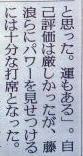 と思った。運もある」。自
己評価は厳しかったが、藤
浪らにパワーを見せつける
には十分な打席となった。